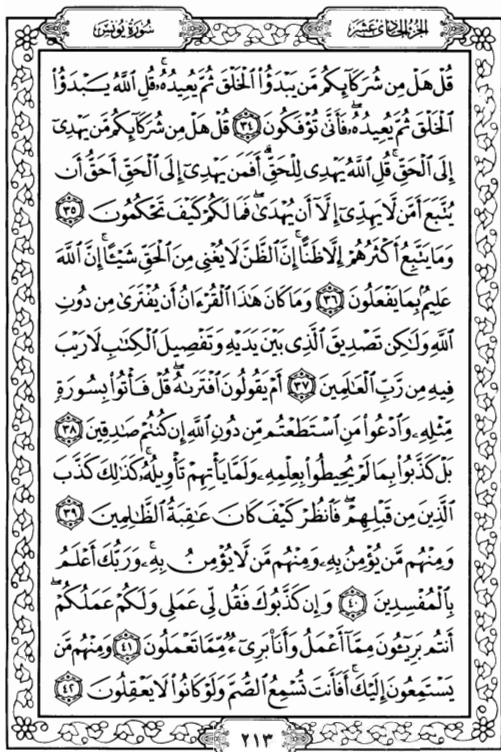 سُورَةُ يُونُسَ الجزء الحادى عشر
قُلْ هَلْ مِن شُرَكَآئِكُم مَّن يَبْدَؤُا۟ ٱلْخَلْقَ ثُمَّ يُعِيدُهُۥ ۚ قُلِ ٱللَّهُ يَبْدَؤُا۟
ٱلْخَلْقَ ثُمَّ يُعِيدُهُۥ ۖ فَأَنَّىٰ تُؤْفَكُونَ ٣٤ قُلْ هَلْ مِن شُرَكَآئِكُم مَّن يَهْدِىٓ
إِلَى ٱلْحَقِّ ۚ قُلِ ٱللَّهُ يَهْدِى لِلْحَقِّ ۗ أَفَمَن يَهْدِىٓ إِلَى ٱلْحَقِّ أَحَقُّ أَن
يُتَّبَعَ أَمَّن لَّا يَهِدِّىٓ إِلَّآ أَن يُهْدَىٰ ۖ فَمَا لَكُمْ كَيْفَ تَحْكُمُونَ ٣٥
وَمَا يَتَّبِعُ أَكْثَرُهُمْ إِلَّا ظَنًّا ۚ إِنَّ ٱلظَّنَّ لَا يُغْنِى مِنَ ٱلْحَقِّ شَيْـًٔا ۚ إِنَّ ٱللَّهَ
عَلِيمٌۢ بِمَا يَفْعَلُونَ ٣٦ وَمَا كَانَ هَـٰذَا ٱلْقُرْءَانُ أَن يُفْتَرَىٰ مِن دُونِ
ٱللَّهِ وَلَـٰكِن تَصْدِيقَ ٱلَّذِى بَيْنَ يَدَيْهِ وَتَفْصِيلَ ٱلْكِتَـٰبِ لَا رَيْبَ
فِيهِ مِن رَّبِّ ٱلْعَـٰلَمِينَ ٣٧ أَمْ يَقُولُونَ ٱفْتَرَىٰهُ ۖ قُلْ فَأْتُوا۟ بِسُورَةٍ
مِّثْلِهِۦ وَٱدْعُوا۟ مَنِ ٱسْتَطَعْتُم مِّن دُونِ ٱللَّهِ إِن كُنتُمْ صَـٰدِقِينَ ٣٨
بَلْ كَذَّبُوا۟ بِمَا لَمْ يُحِيطُوا۟ بِعِلْمِهِۦ وَلَمَّا يَأْتِهِمْ تَأْوِيلُهُۥ ۚ كَذَٰلِكَ كَذَّبَ
ٱلَّذِينَ مِن قَبْلِهِمْ ۖ فَٱنظُرْ كَيْفَ كَانَ عَـٰقِبَةُ ٱلظَّـٰلِمِينَ ٣٩
وَمِنْهُم مَّن يُؤْمِنُ بِهِۦ وَمِنْهُم مَّن لَّا يُؤْمِنُ بِهِۦ ۚ وَرَبُّكَ أَعْلَمُ
بِٱلْمُفْسِدِينَ ٤٠ وَإِن كَذَّبُوكَ فَقُل لِّى عَمَلِى وَلَكُمْ عَمَلُكُمْ ۖ
أَنتُم بَرِيٓـُٔونَ مِمَّآ أَعْمَلُ وَأَنَا۠ بَرِىٓءٌ مِّمَّا تَعْمَلُونَ ٤١ وَمِنْهُم مَّن
يَسْتَمِعُونَ إِلَيْكَ ۚ أَفَأَنتَ تُسْمِعُ ٱلصُّمَّ وَلَوْ كَانُوا۟ لَا يَعْقِلُونَ ٤٢
٢١٣